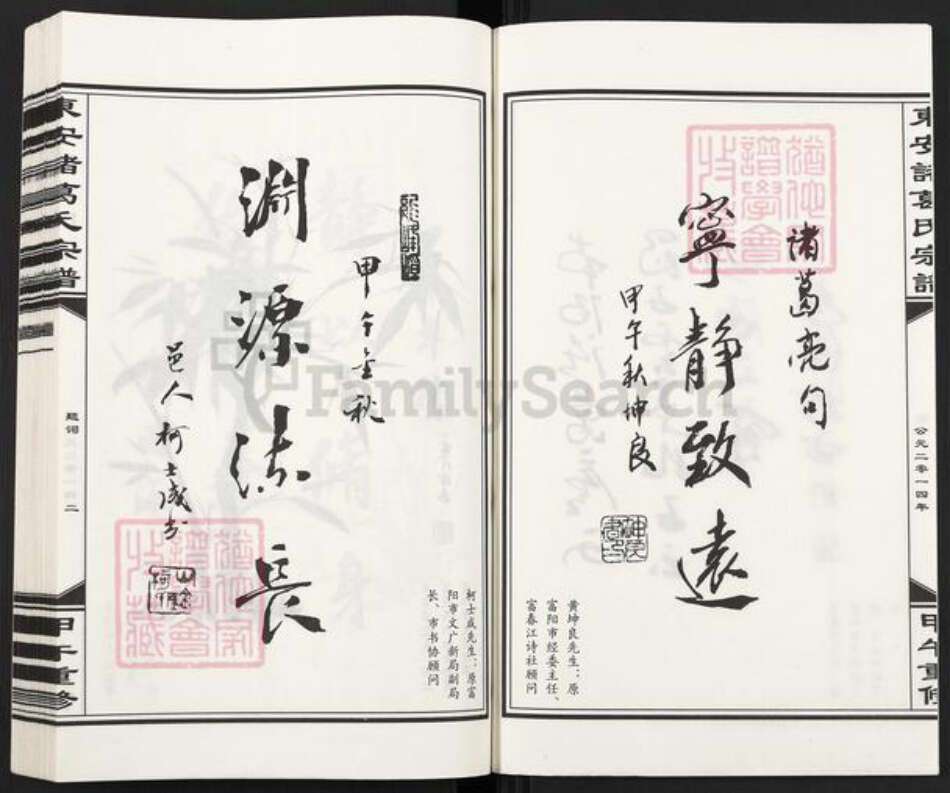 東安諸葛氏宗譜
公元二零一四年
甲午重修
諸葛亮句
寧靜致遠
甲午秋坤良
黄坤良先生：原
富阳市经委主任、
富春江诗社顾问
甲午金秋
淵源流長
邑人柯士成书
柯士成先生：原富
阳市文广新局副局
长、市书协顾问
東安諸葛氏宗譜
题词
二
甲午重修
FamilySearch